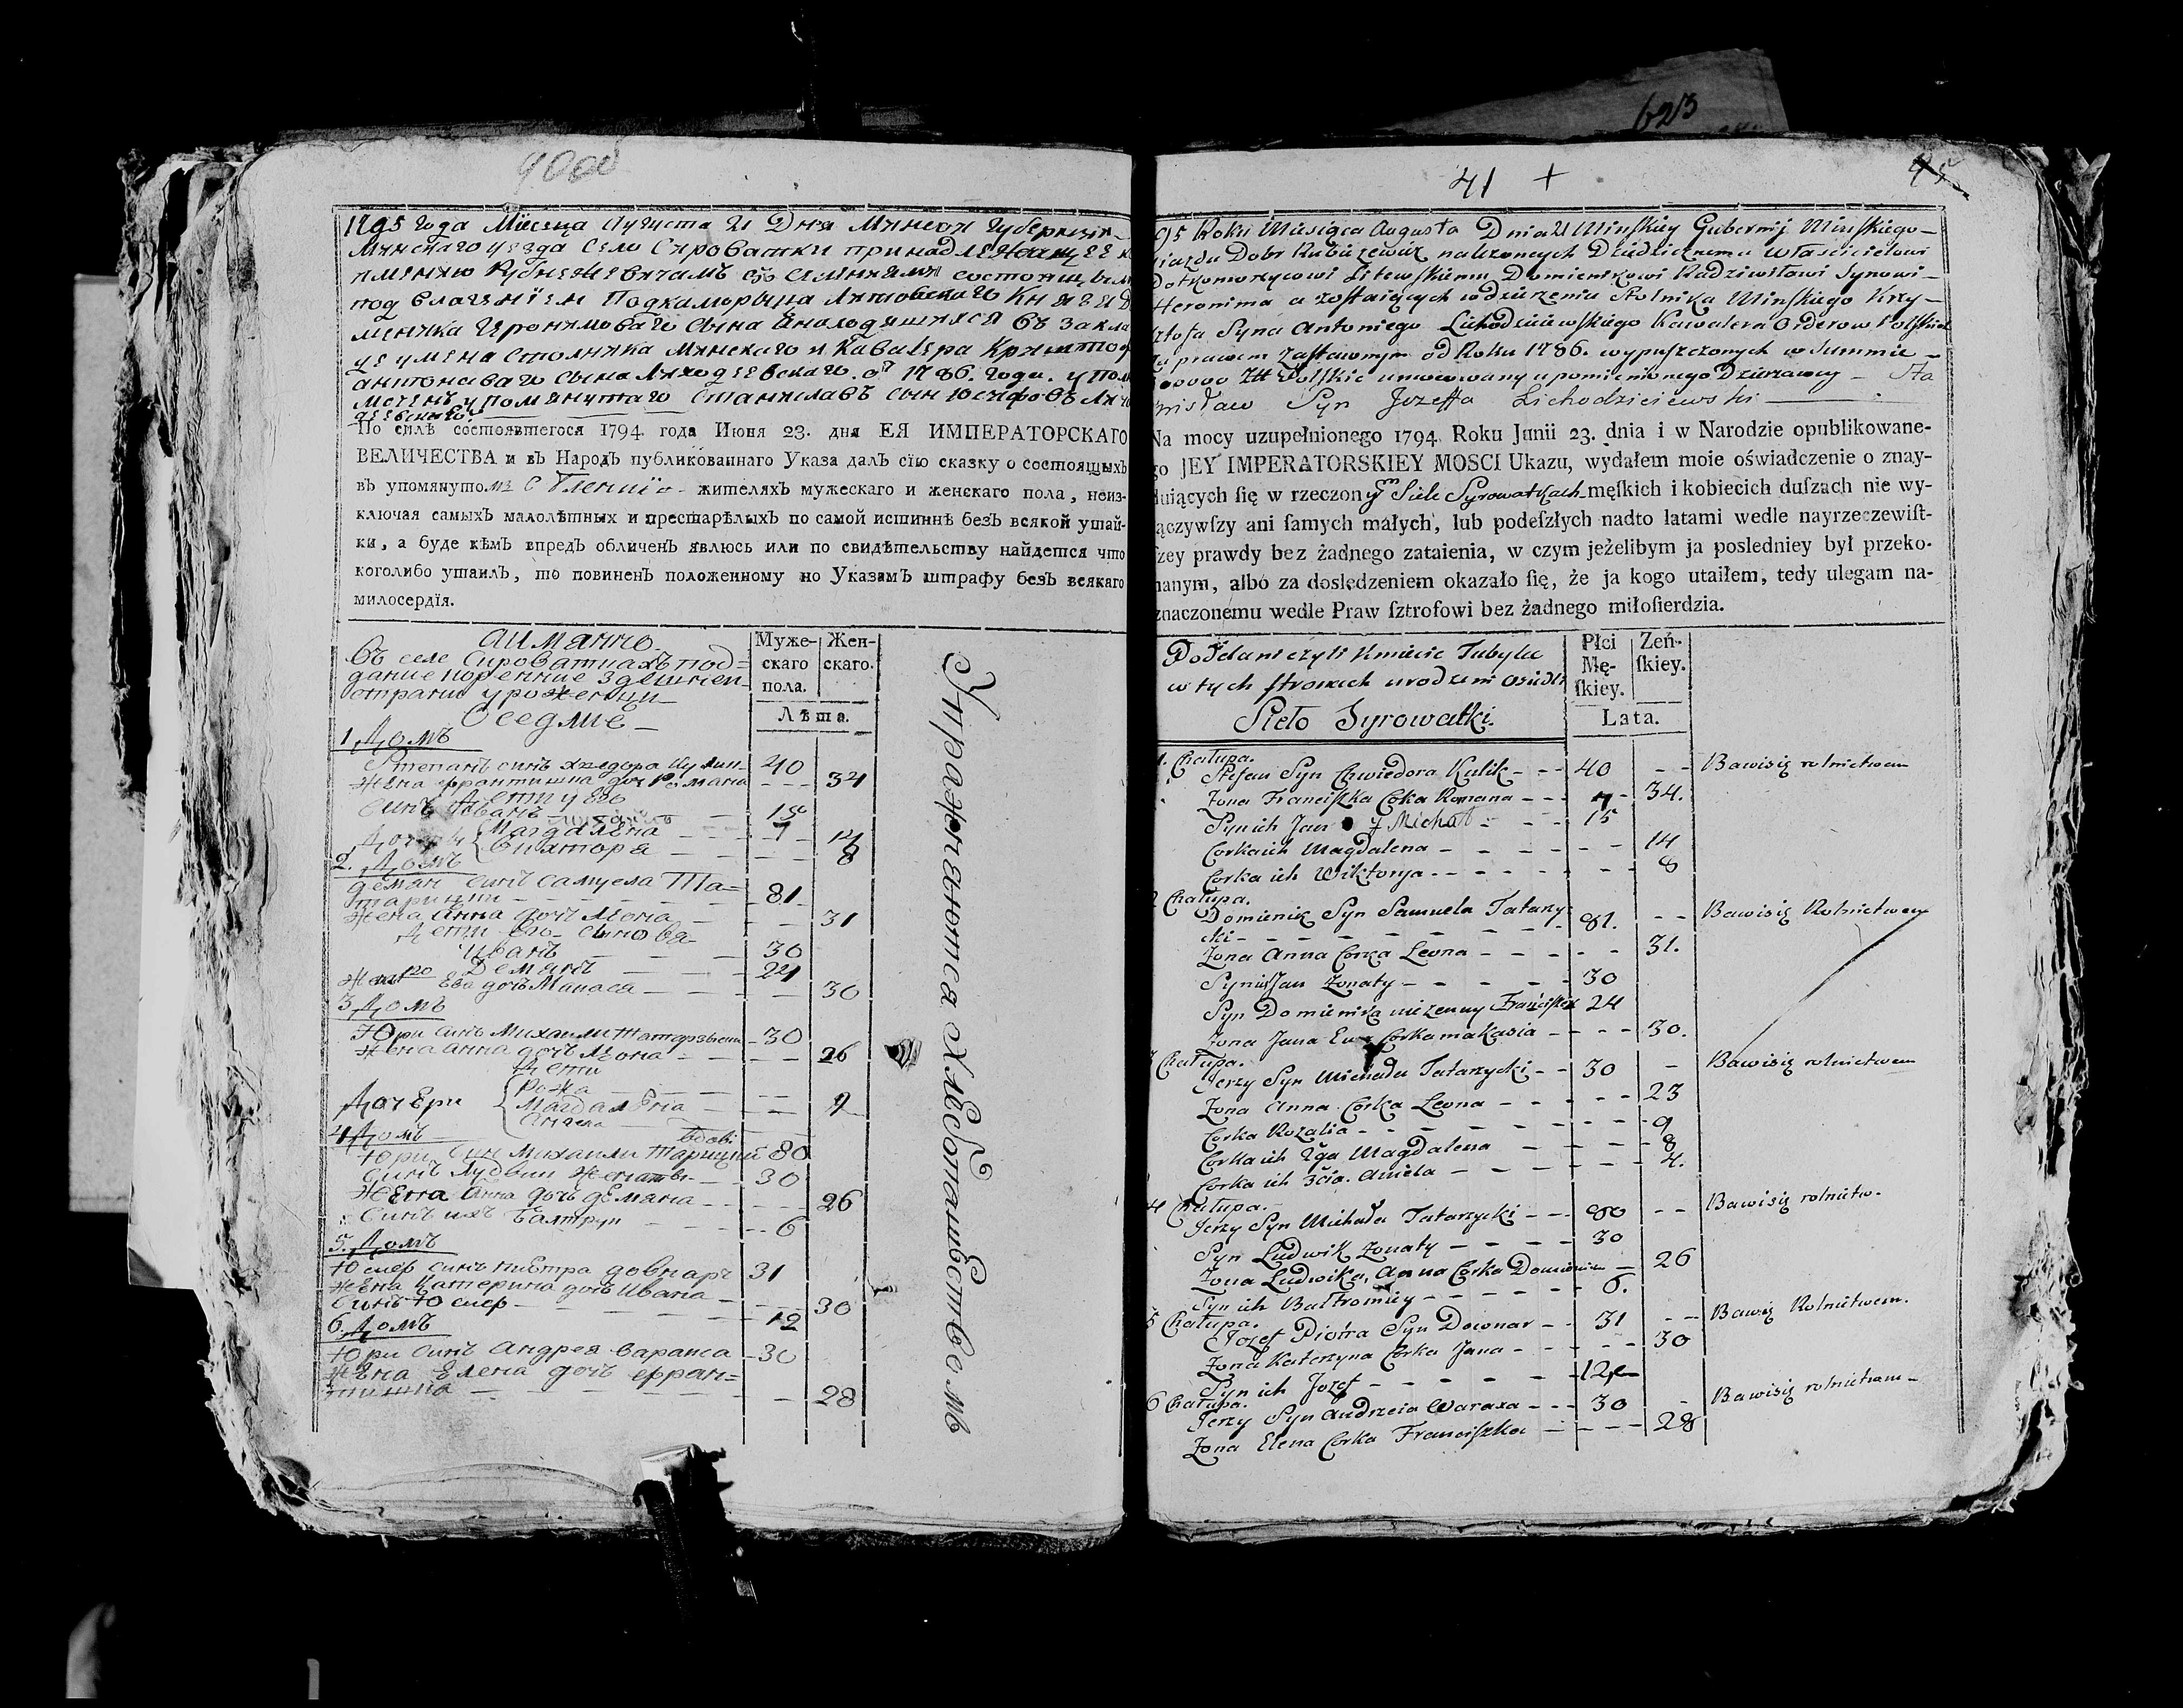 623
41 +
45
1795 года Месяца Августа 21 Дня Минской Губернии
Минскаго уезда село Сироватки принадлежащее к
имению Рубижевичамъ состоящымъ
под владениемъ Подкаморыца Литовскаго Князя До
меника Иронимоваго сына Янаходящияся въ закла
Столника Минскаго и Кавалера Криштоф
антоноваго сына Лиходзеевскаго отъ 1786. года. упол
моченъ упомянутаго Станиславъ сын Юсифовъ Лихо
дзеевскаго
По силѣ состоявшегося 1794 года Июня 23. дня ЕЯ ИМПЕРАТОРСКАГО
ВЕЛИЧЕСТВА и въ Народъ публикованнаго Указа далъ сїю сказку о состоящыхъ
въ упомянутомъ селении жителяхъ мужескаго и женскаго пола, неиз-
ключая самыхъ малолѣтныхъ и престарѣлыхъ по самой истиннѣ безъ всякой утай-
ки, а буде кѣмъ впредъ обличенъ явлюсь или по свидѣтельству найдется что
коголибо утаилъ, то повиненъ положенному по Указамъ штрафу безъ всякаго
милосердїя.
аимянно
Въ селе Сироваткахъ под=
дание коренние здешней
страни уроженци
Оседлие
Муже-
скаго
пола.
Жен-
скаго.
Лѣта.
1 Домъ
Степанъ синъ Хведора Кулик 40
жена Франтишка доч Романа 34
Дети их
Синъ Иванъ 15
Дочери Магдалена 7 14
Виктория 8
2. Домъ
Демян синъ Самуела Та=
тарицки 81
жена Анна дочъ Леона 31
Дети его синовя
Иванъ 30
Демянъ 24
Жена Ева дочъ Макаса 30
3 Домъ
Юри синъ Михайли Татарзыцки 30
жена Анна дочъ Леона 26
Дети
Дочери Рожа
Магдалена 9
Анчела
4 Домъ
вдовъ
Юри Синъ Михайли Тарицкий 80
Синъ Лудвик женати 30
Жена Анна дочъ Демяна 26
Синъ ихъ Балтруп 6
5. Домъ
Юсиф синъ Пиетра довнаръ 31
жена Катерина дочъ Ивана 30
Синъ Юсиф 12
6 Домъ
Юри синъ Андрея Варакса 30
жена Елена дочъ Фран=
тишка 28
Упражняются Хлебопашествемъ
95 Roku Miesiąca Augusta Dnia 21 Minskiey Gubernij Minskiego
iazdu Dobr Rubiżewicz należoncych Dziedzicznemu własścicielowi
Podkomorzycowi Litewskiemu Domienikowi Radziwiłłowi Synowi
Heronima a zostaiących wdzierżeniu Stolnika Minskiego Krzy-
sztofa Syna Antoniego Lichodzieiewskiego Kawalera Orderow Polskich
za prawem Zastawnym od Roku 1786. wypuszczonych w Summie
00000 Złł Polskie umocowany upomienionego Dzierżawcy Sta
nisław Syn Jozeffa Lichodzieiewski
Na mocy uzupełnionego 1794 Roku Junii 23. dnia i w Narodzie opublikowane-
go JEY IMPERATORSKIEY MOSCI Ukazu, wydałem moie oświadczenie o znay-
duiących ſię w rzeczonym Siele Syrowatkach męſkich i kobiecich duſzach nie wy-
łączywſzy ani ſamych małych, lub podeſzłych nadto latami wedle nayrzeczewiſt-
ſzey prawdy bez żadnego zataienia, w czym jeżelibym ja posledniey był przeko-
nanym, albo za dosledzeniem okazało ſię, że ja kogo utaiłem, tedy ulegam na-
znaczonemu wedle Praw ſztrofowi bez żadnego miłoſierdzia.
Poddani czyli Kmiecie Tubylce
w tych stronach urodzeni osiedli
Sieło Syrowatki.
Płci
Mę-
ſkiey.
Zeń-
ſkiey.
Lata.
1. Chałupa.
Stefan Syn Chwiedora Kulik 40 Bawi się rolnictwem
Zona Franciszka Corka Romana 34.
7
Syn ich Jan y Michał 15
Corka ich Magdalena 14
Corka ich Wiktorya 8
2 Chałupa.
Domienik Syn Samuela Tatarzy-
cki 81. Bawi się Rolnictwem
Zona Anna Corka Leona 31.
Syn iż Jan Zonaty 30
Syn Domienika nieżenny Franciszek 24
Zona Jana Ewa Corka makasia 30.
3 Chałupa.
Jerzy Syn Michała Tatarzycki 30 Bawi się rolnictwem
Zona Anna Corka Leona 23
Corka Rozalia 9
Corka ich 2ga Magdalena 8
Corka ich 3cia Aniela 4.
4 Chałupa.
Jerzy Syn Michała Tatarzycki 80 Bawi się rolnictw.
Syn Ludwik Zonaty 30
Zona Ludwika, Anna Corka Domienika 26
Syn ich Bałtromiey 6.
5 Chałupa.
Jozef Piotra Syn Downar 31 Bawi się Rolnictwem.
Zona Katerzyna Corka Jana 30
Syn ich Jozef 12
6 Chałupa.
Jerzy Syn Andrzeia Waraxa 30 Bawi się rolnictwem
Zona Elena Corka Franciszka 28